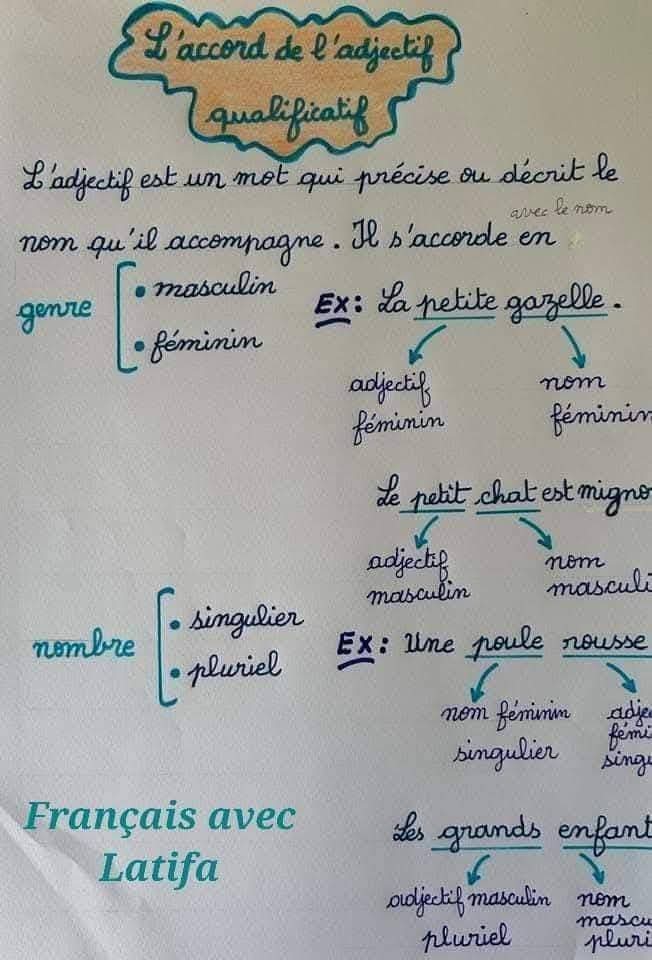 L'accord de l'adjectif
qualificatif
L'adjectif est un mot qui précise ou décrit le
avec le nom
nom qu'il accompagne. Il s'accorde en
genre
• masculin
• féminin
Ex: La petite gazelle.
adjectif
féminin
nom
féminin
Le petit chat est migno
adjectif
masculin
nom
masculi
nombre
• singulier
• pluriel
Ex: Une poule rousse
nom féminin
singulier
adje
fémi
singu
Les grands enfant
adjectif masculin
pluriel
nom
mascu
pluri
Français avec
Latifa